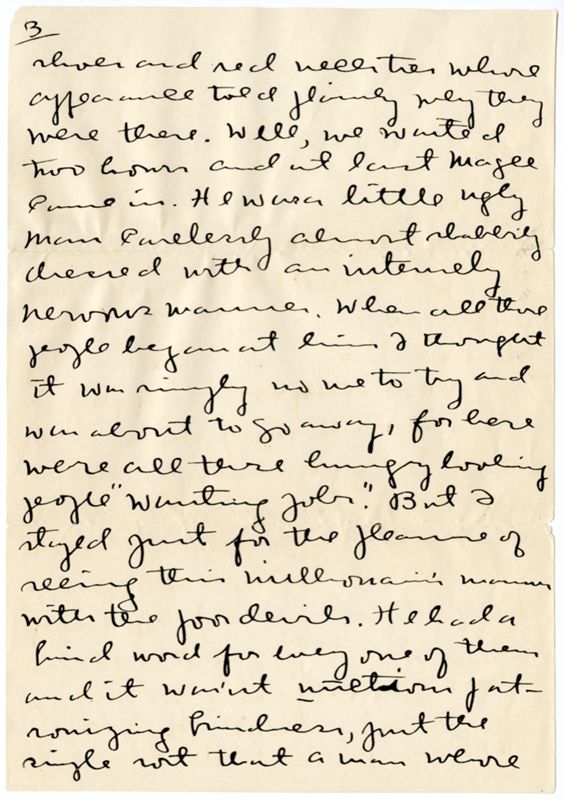 3
shoes and red neckties whose
appearance told plainly why they
were there. Well, we waited
two hours and at last Magee
came in. He was a little ugly
man carelessly almost shabbily
dressed with an intensely
nervous manner. When all those
people began at him I thought
it was simply no use to try and
was about to go away, for here
were all these hungry looking
people "wanting jobs". But I
stayed just for the pleasure of
seeing this millionair's manner
with the poor devils. He had a
kind word for every one of them
and it wasn't patronizing
ronizing kindness, just the
simple sort that a man whose